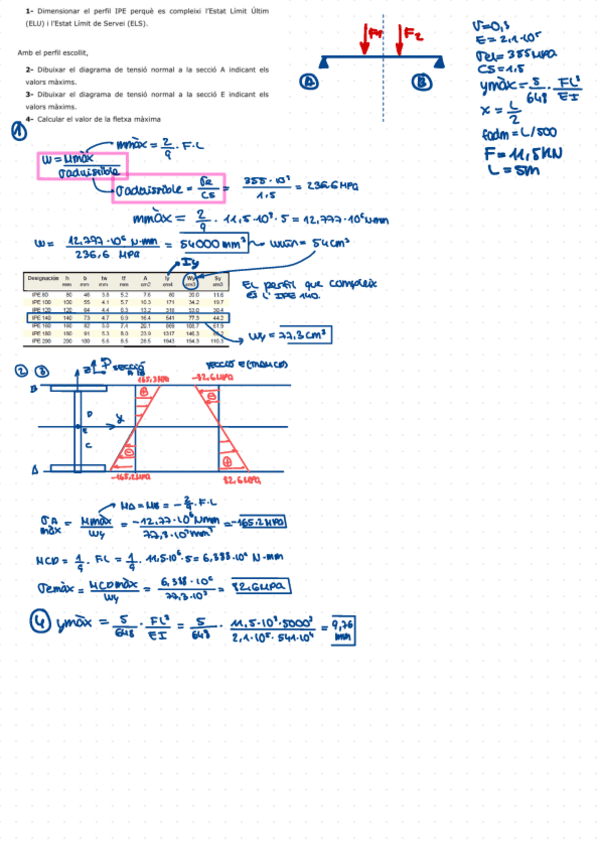 1- Dimensionar el perfil IPE perquè es compleixi l'Estat Límit Últim
(ELU) i l'Estat Límit de Servei (ELS).
Amb el perfil escollit,
2- Dibuixar el diagrama de tensió normal a la secció A indicant els
valors màxims.
3- Dibuixar el diagrama de tensió normal a la secció E indicant els
valors màxims.
4- Calcular el valor de la fletxa màxima
F1 F2
A B
V=0,3
E=2,1·10⁵
σel=355MPa
CS=1,5
ymàx=5/648·FL³/EI
x=L/2
fadm=L/500
F=11,5KN
L=5m
1
mmàx=2/9·F·L
W=Mmàx/σadmissible
σadmissible=σe/CS=355·10⁶/1,5=236,6MPa
mmàx=2/9·11,5·10³·5=12,777·10⁶Nmm
W=12,777·10⁶N·mm/236,6 MPa=54000mm³ → wmín=54cm³
Iy
Designación h b tw tf A Iy Wy Sy
mm mm mm mm cm2 cm4 cm3 cm3
IPE 80 80 46 3.8 5.2 7.6 80 20.0 11.6
IPE 100 100 55 4.1 5.7 10.3 171 34.2 19.7
IPE 120 120 64 4.4 6.3 13.2 318 53.0 30.4
IPE 140 140 73 4.7 6.9 16.4 541 77.3 44.2
IPE 160 160 82 5.0 7.4 20.1 869 108.7 61.9
IPE 180 180 91 5.3 8.0 23.9 1317 146.3
IPE 200 200 100 5.6 8.5 28.5 1943 194.3 110.3
EL perfil que compleix
és l'IPE 140.
Wy=77,3cm³
2 3
SECCIÓ
A i B
SECCIÓ E(TRAM CD)
165,3MPa -82,6MPa
B
D
E
C
A
-165,2MPa 82,6MPa
MA=MB=-2/9·F·L
σA màx=Mmàx/Wy=-12,77·10⁶Nmm/77,3·10³mm³=-165,2MPa
MCD=1/9·FL=1/9·11,5·10⁶·5=6,388·10⁶ N·mm
σemàx=MCDmàx/Wy=6,388·10⁶/77,3·10³=82,6MPa
4 ymàx=5/648·FL³/EI=5/648·11,5·10³·5000³/2,1·10⁵·541·10⁴=9,76 mm